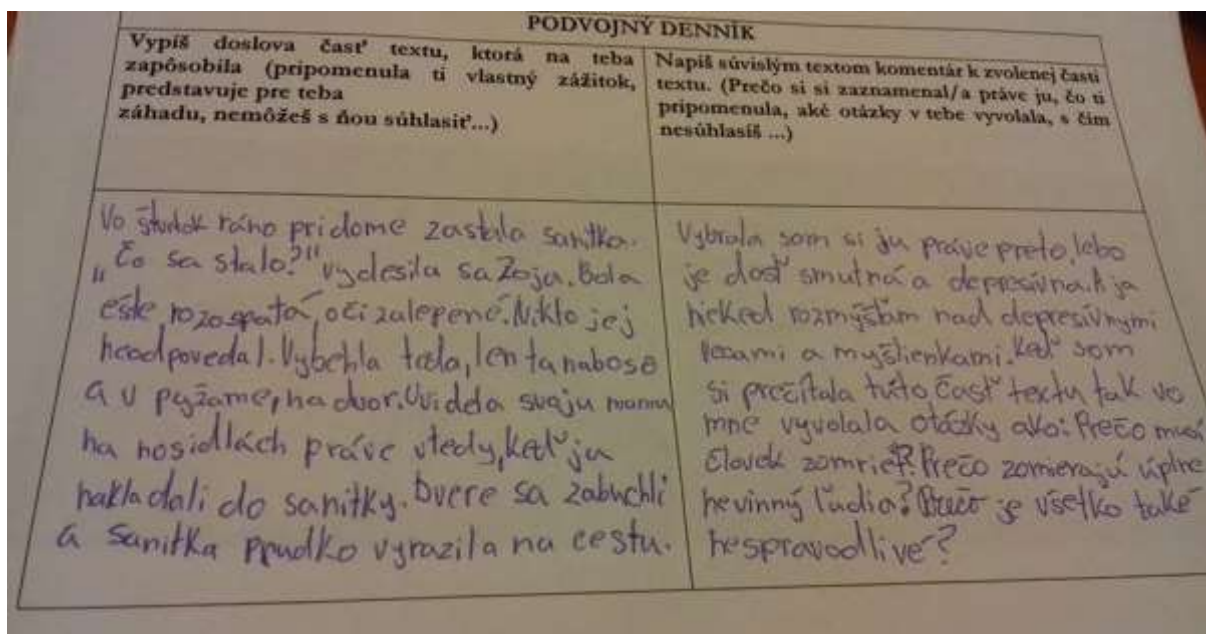 PODVOJNÝ DENNÍK
Vypíš doslova časť textu, ktorá na teba
zapôsobila (pripomenula ti vlastný zážitok,
predstavuje pre teba
záhadu, nemôžeš s ňou súhlasiť...)
Napíš súvislým textom komentár k zvolenej časti
textu. (Prečo si si zaznamenal/a práve ju, čo ti
pripomenula, aké otázky v tebe vyvolala, s čím
nesúhlasíš ...)
Vo štvrtok ráno pri dome zastala sanitka.
„Čo sa stalo?" vydesila sa Zoja. Bola
ešte rozospatá, oči zalepené. Nikto jej
neodpovedal. Vybehla teda, len tak nabose
a v pyžame, na dvor. Uvidela svoju mamu
na nosidlách práve vtedy, keď ju
nakladali do sanitky. Dvere sa zabuchli
a sanitka prudko vyrazila na cestu.
Vybrala som si ju práve preto, lebo
je dosť smutná a depresívna. A ja
niekedy rozmýšľam nad depresívnymi
vecami a myšlienkami. Keď som
si prečítala túto časť textu tak vo
mne vyvolala otázky ako: Prečo musí
človek zomrieť? Prečo zomierajú úplne
nevinný ľudia? Prečo je všetko také
nespravodlivé?